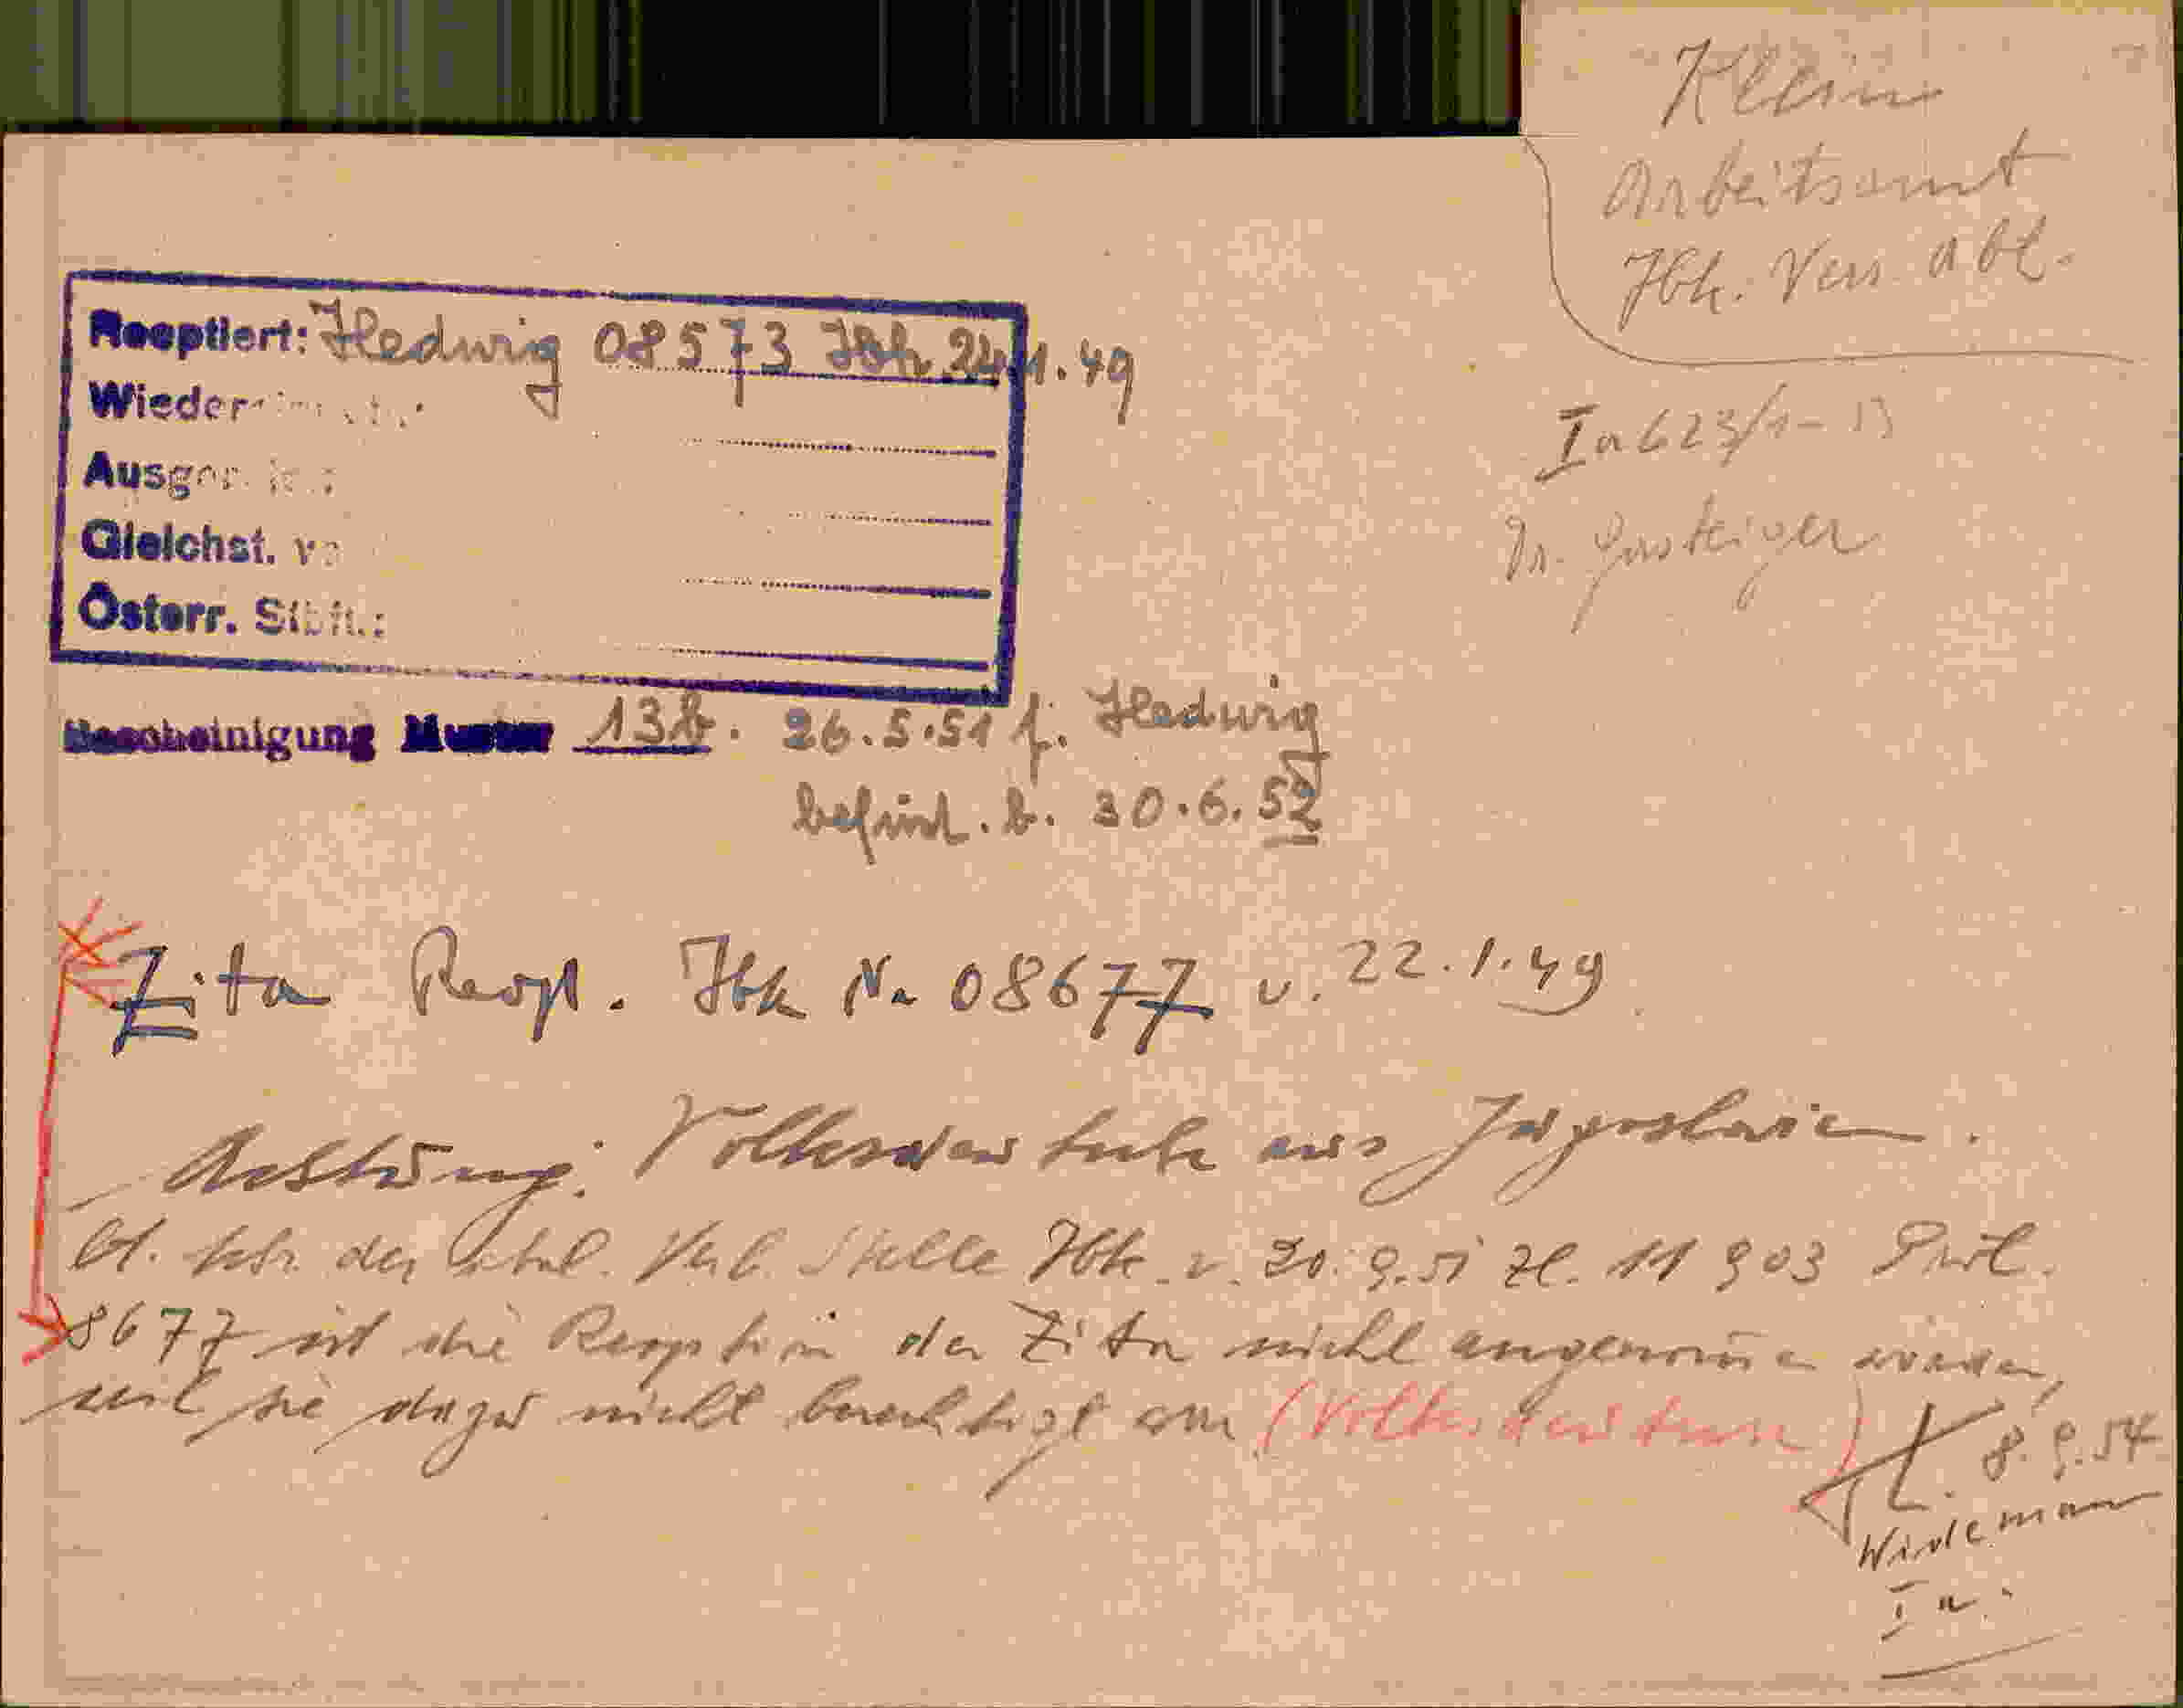 Klein
Arbeitsamt
Ibk. Vers. Abt.
Reoptiert: Hedwig 08573 Ibk 24.1.49
Wieder
Ausger.
Gleichst. v
Österr. Stbft.:
Ia 623/1-13
Dr. Gasteiger
Bescheinigung Muster 13b. 26.5.51 f. Hedwig
befrist. b. 30.6.52
Zita Reopt. Ibk Nr 08677 v. 22.1.49
Achtung: Volksdeutsche aus Jugoslavien.
lt. der ital. Verb. Stelle Ibk. v. 20.9.51 Zl. 11903 Prot.
8677 ist die Reoption der Zita nicht angenommen worden,
weil sie dazu nicht berechtigt war (Volksdeutsche)
8.9.54
Wiedemann
Ia.